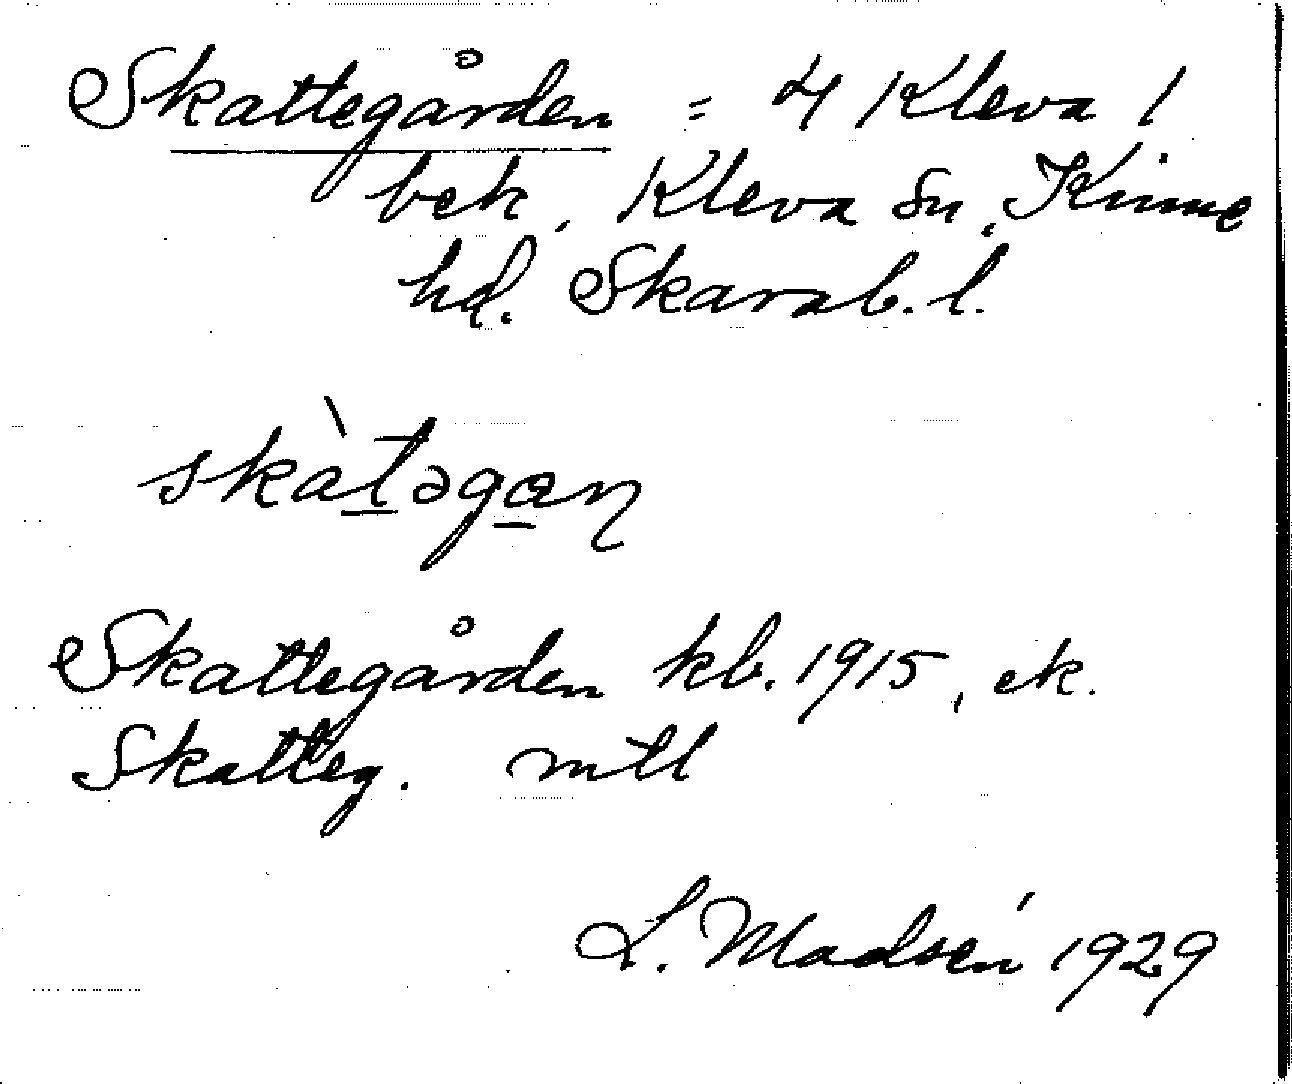 Skattegården = 4 Kleva 1
bek, Kleva sn, Kinne
hd. Skarab. l.
skàt̲əga̲ɳ
Skattegården kb. 1915, ek.
Skatteg. mtl
L. Madsén 1929